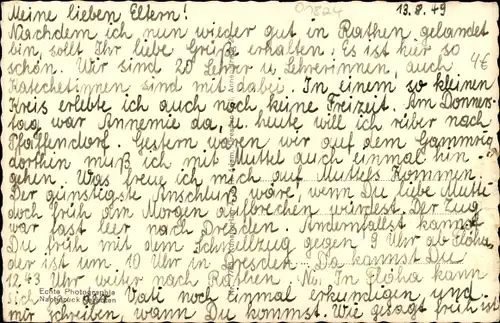 01824
13.8.49
Meine lieben Eltern!
Nachdem ich nun wieder gut in Rathen gelandet
bin, sollt Ihr liebe Grüße erhalten. Es ist hier so
schön. Wir sind 20 Lehrer u. Lehrerinnen, auch
4€
Katechetinnen sind mit dabei. In einem so kleinen
Kreis erlebte ich auch noch keine Freizeit. Am Donners-
tag war Annemie da, u. heute will ich rüber nach
Pfaffendorf. Gestern waren wir auf dem Gamrig
dorthin muß ich mit Muttel auch einmal hin-
gehen. Was freue ich mich auf Muttels Kommen.
Der günstigste Anschluß wäre, wenn Du liebe Mutti
doch früh am Morgen aufbrechen würdest. Der Zug
war fast leer nach Dresden. Andernfalls kannst
Du früh mit dem Schnellzug gegen 9 Uhr ab Flöha,
der ist um 10 Uhr in Dresden. Da kannst Du
12.43 Uhr weiter nach Rathen. In Flöha kann
Echte Photographie
sich Vati noch einmal erkundigen und
mir schreiben, wann Du kommst. Wie gesagt früh ist